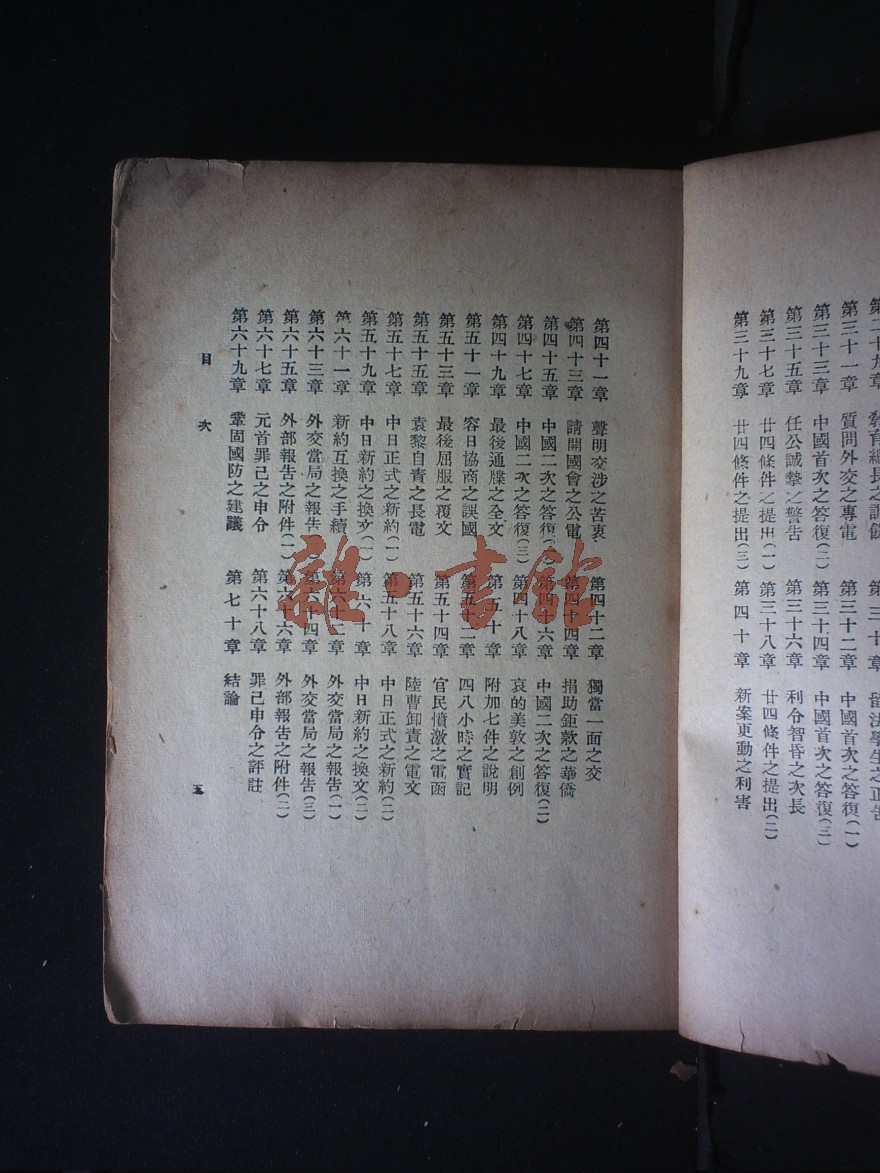 第三十一章 質問外交之專電 第三十二章 中國首次之答復(一)
第三十三章 中國首次之答復(二) 第三十四章 中國首次之答復(三)
第三十五章 任公誠摯之警告 第三十六章 利令智昏之次長
第三十七章 廿四條件之提出(一) 第三十八章 廿四條件之提出(二)
第三十九章 廿四條件之提出(三) 第四十章 新案更動之利害
第四十一章 聲明交涉之苦衷 第四十二章 獨當一面之交
第四十三章 請開國會之公電 第四十四章 捐助鉅款之華僑
第四十五章 中國二次之答復 第四十六章 中國二次之答復(二)
第四十七章 中國二次之答復(三) 第四十八章 哀的美敦之創例
第四十九章 最後通牒之全文 第五十章 附加七件之說明
第五十一章 容日協商之誤國 第五十二章 四八小時之實記
第五十三章 最後屈服之覆文 第五十四章 官民憤激之電函
第五十五章 袁黎自責之長電 第五十六章 陸曹卸責之電文
第五十七章 中日正式之新約(一) 第五十八章 中日正式之新約(二)
第五十九章 中日新約之換文(一) 第六十章 中日新約之換文(二)
第六十一章 新約互換之手續 第六十二章 外交當局之報告(一)
第六十三章 外交當局之報告 第六十四章 外交當局之報告(三)
第六十五章 外部報告之附件(一) 第六十六章 外部報告之附件(二)
第六十七章 元首罪己之申令 第六十八章 罪己申令之評註
第六十九章 鞏固國防之建議 第七十章 結論
目次 五
雜·書館